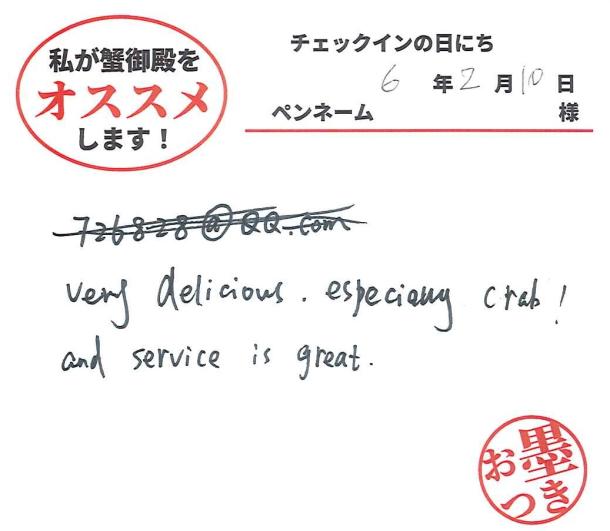 私が蟹御殿を
オススメ
します！
チェックインの日にち
6 年 2 月 10 日
ペンネーム 様
726828@QQ.com
very delicious. especially crab!
and service is great.
お墨
つき